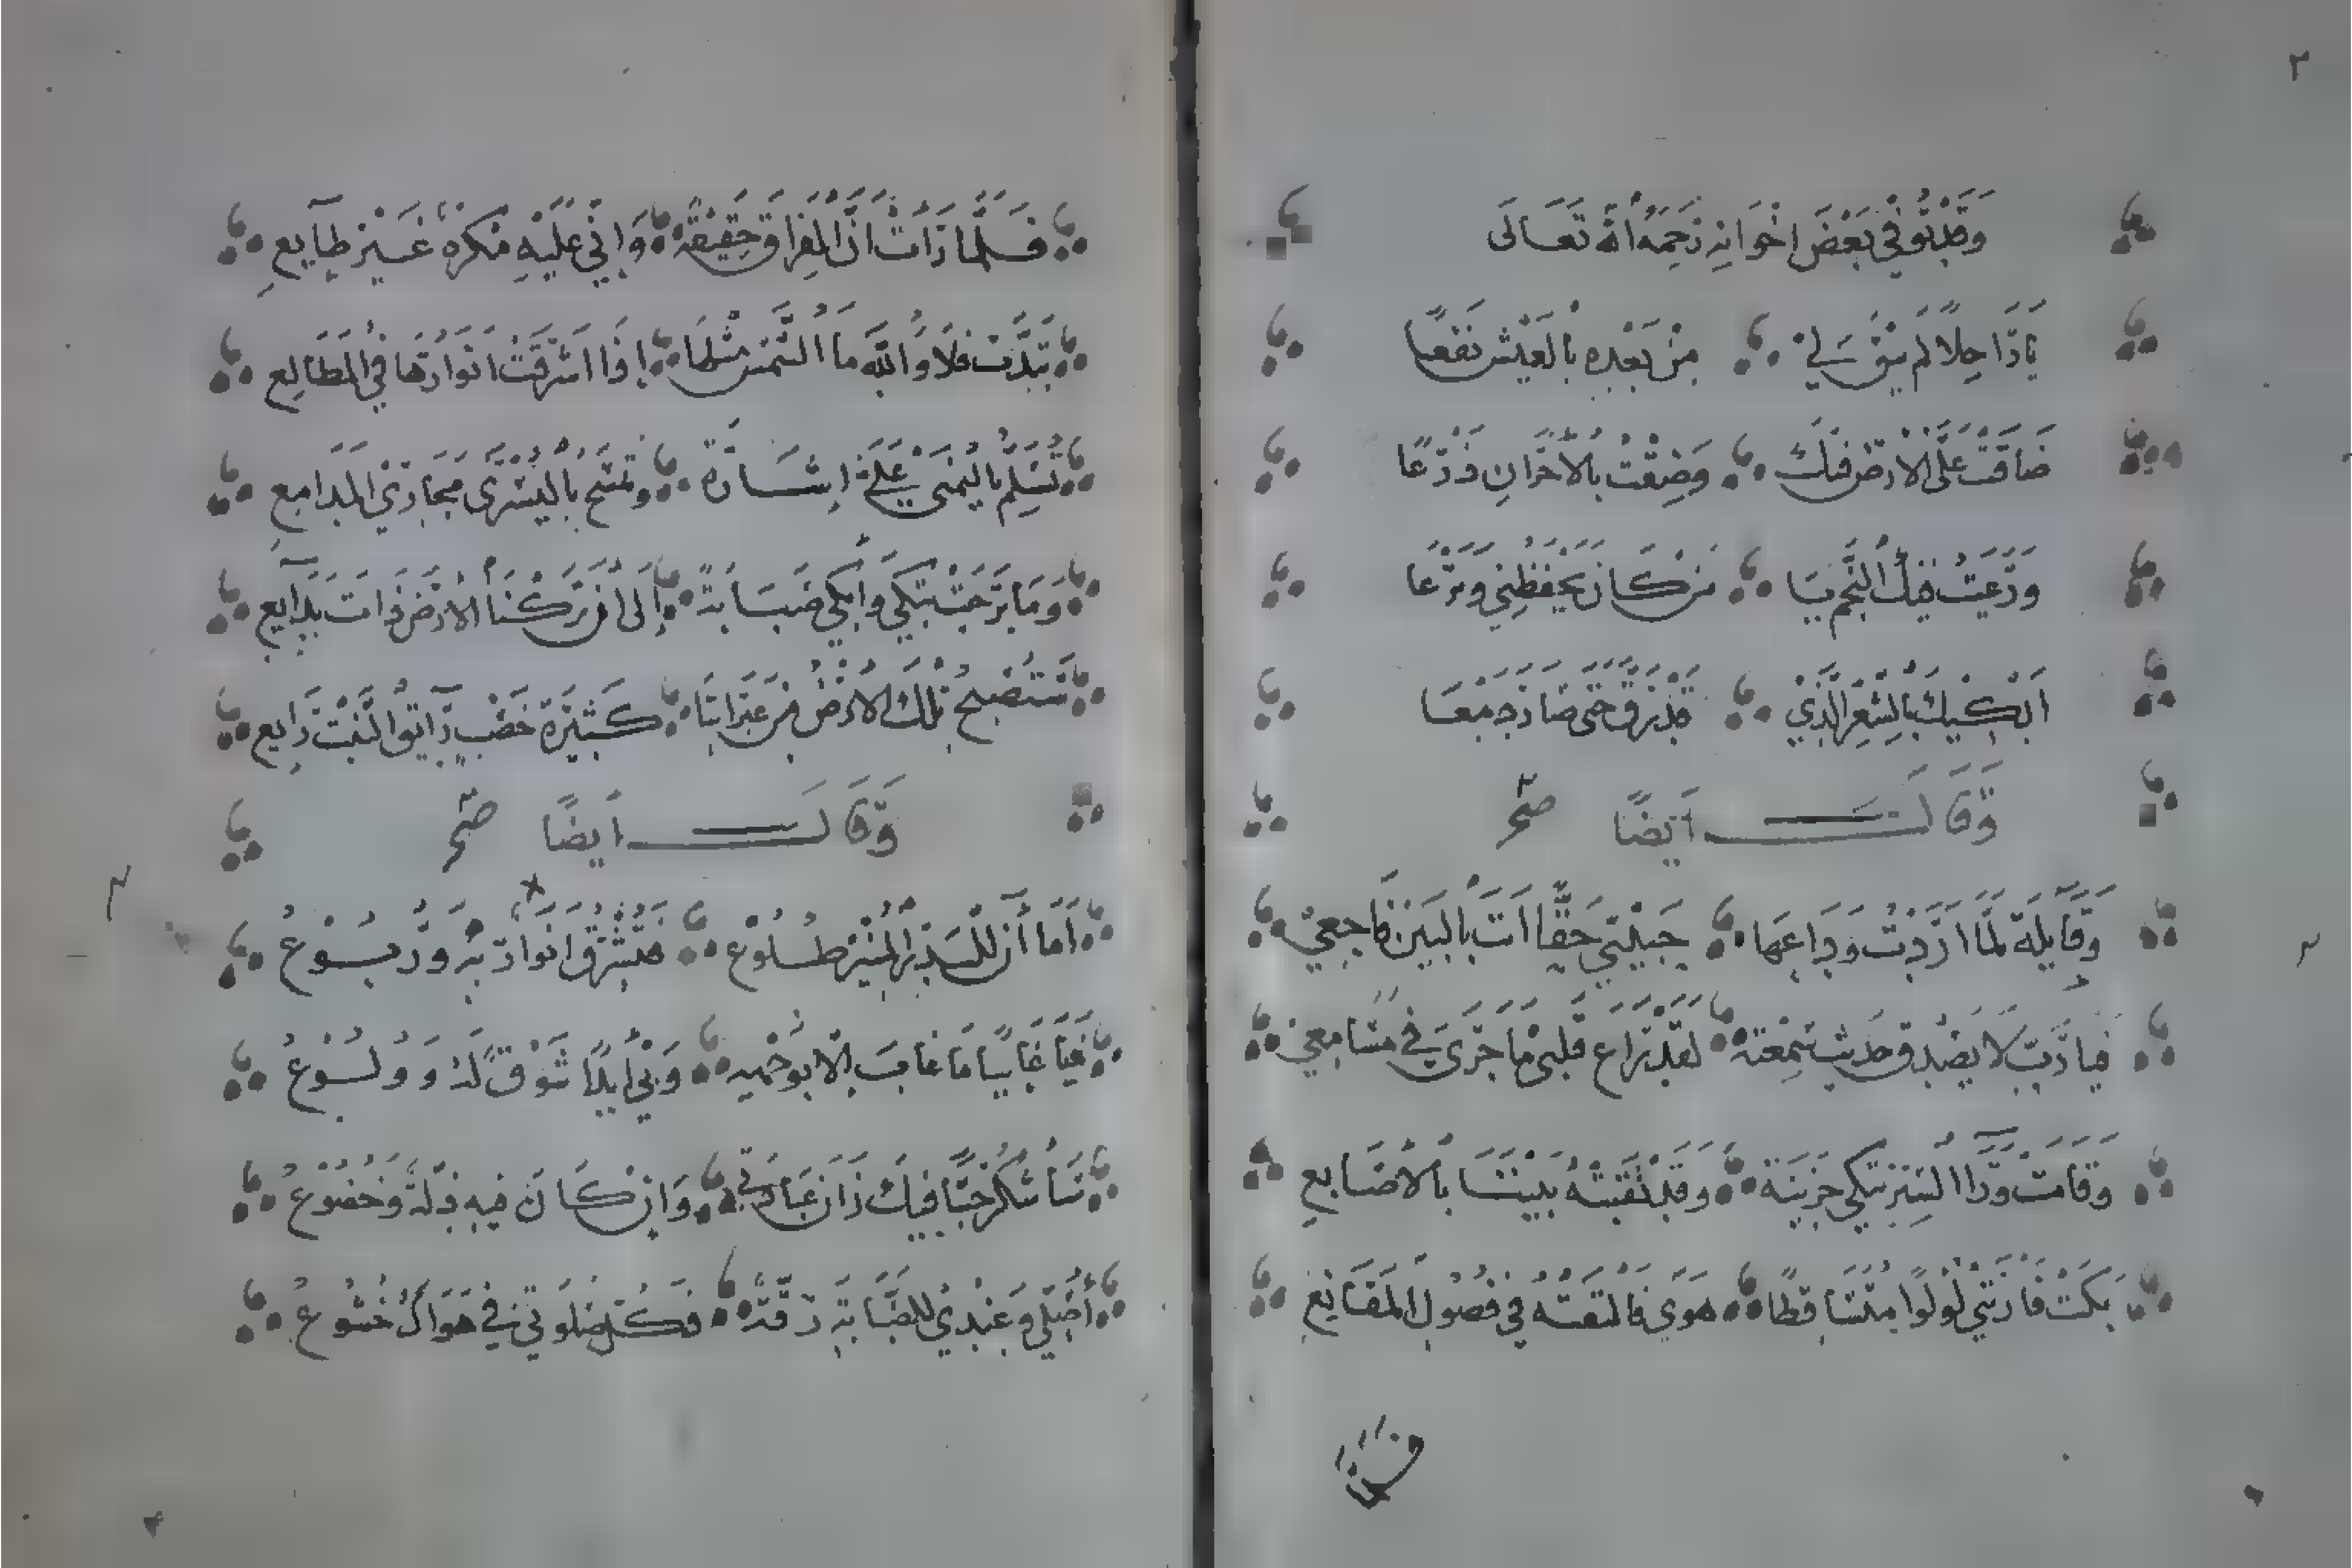 ٣
وَقَالَ فِي بَعْضِ اِخْوَانِهِ رَحِمَهُ اللهُ تَعَالَى
يَارَاحِلًا لَمْ يَبْقَ لِي مِنْ بَعْدِهِ بِالْعَيْشِ نَفْعًا
ضَاقَتْ عَلَيَّ الْارْضُ فِيكَ وَضِقْتُ بِالْاحْزَانِ ذَرْعًا
وَرَعَيْتُ فِيكَ النَّجْمَ يَا مَنْ كَانَ يَحْفَظُنِي وَيَرْعَا
اَبْكِيْكَ بِالشِّعْرِ الَّذِيْ قَدْ رَقَّ حَتَّى صَارَ دَمْعَا
وَقَالَ اَيْضًا صح
وَقَايِلَةٍ لَمَّا اَرَدْتُ وَدَاعَهَا حَبِيْبَتِي حَقًّا اَنْتَ بِالْبَيْنِ فَاجِعِيْ
فَيَا رَبِّ لَا يَصْدُقْ حَدِيْثٌ سَمِعْتُهُ لَقَدْ رَاعَ قَلْبِيْ مَا جَرَى فِيْ مَسَامِعِيْ
وَقَامَتْ وَرَاءَ السِّتْرِ تَبْكِي حَزِيْنَةً وَقَدْ نَقَبَتْهُ بَيْنَنَا بِالْاصَابِعِ
بَكَتْ فَاَرَتْنِيْ لُوْلُوًا مُتَسَاقِطًا هَوَى فَالْتَقَتْهُ فِي فُصُوْلِ الْمَقَانِعِ
فَلَمَّا
فَلَمَّا رَاَتْ اَنَّ الْفِرَاقَ حَقِيْقَةٌ وَاِنِّي عَلَيْهِ مُكْرَهٌ غَيْرُ طَآيِعِ
تَبَدَّتْ فَلَا وَاللهِ مَا الشَّمْسُ مِثْلَهَا اِذَا اَشْرَقَتْ اَنْوَارُهَا فِي الْمَطَالِعِ
تُسَلِّمُ بِالْيُمْنَى عَلَيَّ اِشَارَةً وَتَمْسَحُ بِالْيُسْرَى مَجَارِيْ الْمَدَامِعِ
وَمَا بَرِحَتْ تَبْكِي وَاَبْكِي صَبَابَةً اِلَى اَنْ تَرَكْنَا الْارْضَ ذَاتَ بَدَآيِعِ
سَتُصْبِحُ تِلْكَ الْارْضُ مِنْ عَبَرَاتِنَا كَثِيْرَةَ خَصْبٍ رَآيِقَ النَّبْتِ رَايِعِ
وَقَالَ اَيْضًا صح
اَمَا اَنَ لِلْبَدْرِ الْمُنِيْرِ طُلُوْعُ فَتُشْرِقُ اَنْوَارٌ بِهِ وَرُبُوْعُ
فَيَا غَايِبًا مَا غَابَ اِلَّا بِوَجْهِهِ وَلِيْ اَبَدًا شَوْقٌ لَهُ وَوُلُوْعُ
سَاَشْكُرُ حُبًّا فِيكَ زَانَ عِبَادَتِي وَاِنْ كَانَ فِيْهِ ذِلَّةٌ وَخُضُوْعُ
اُصَلِّي وَعِنْدِيْ لِلصَّبَابَةِ رِقَّةٌ فَكُلُّ صَلَوتِيْ فِيْ هَوَاكَ خُشُوْعُ